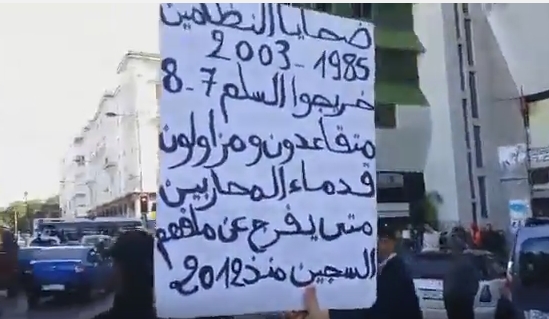 ضحايا النظامين
2003 - 1985
خريجوا السلم 7 - 8
متقاعدون و مزاولون
قدماء المحاربين
متى يفرج عن ملفهم
السجين منذ 2012